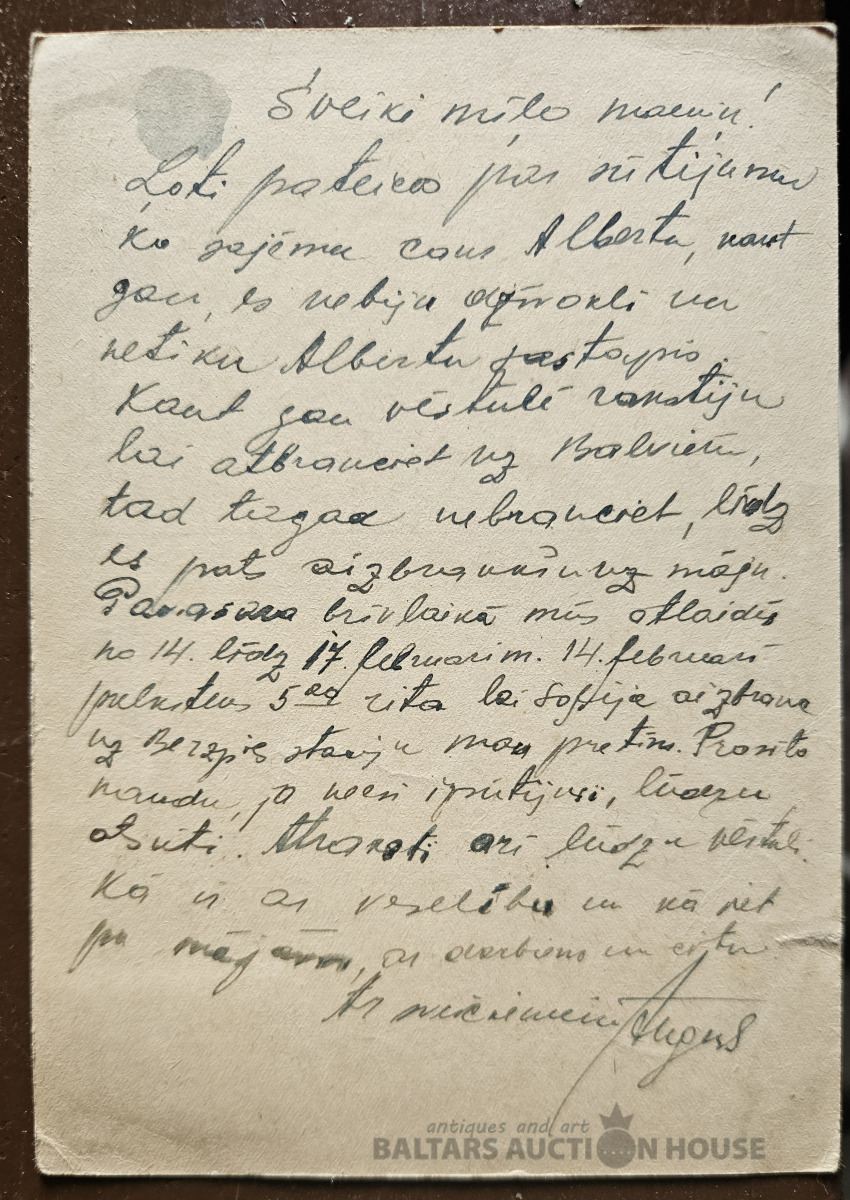 Sveiki mīļo māmiņ!
Ļoti pateicos par sūtījumu
ko saņēmu caur Albertu, kaut
gan, es nebiju dzīvoklī un
netiku Albertu sastapis.
Kaut gan vēstulē rakstīju
lai atbrauciet uz Balviem,
tad tagad nebrauciet, līdz
es pats aizbraukšu uz māju.
Pavasara brīvlaikā mūs atlaidīs
no 14. līdz 17. februarim. 14. februarī
pulkstens 5 00 rītā lai Sofija aizbrauc
uz Bērzpils staciju man pretim. Prasīto
naudu, ja neesi izsūtījusi, lūdzu
atsūti. Atraksti arī lūdzu vēstuli.
Kā ir ar veselību un kā iet
pa mājām, ar darbiem un citu
Ar sveicieniem
antiques and art
BALTARS AUCTION HOUSE